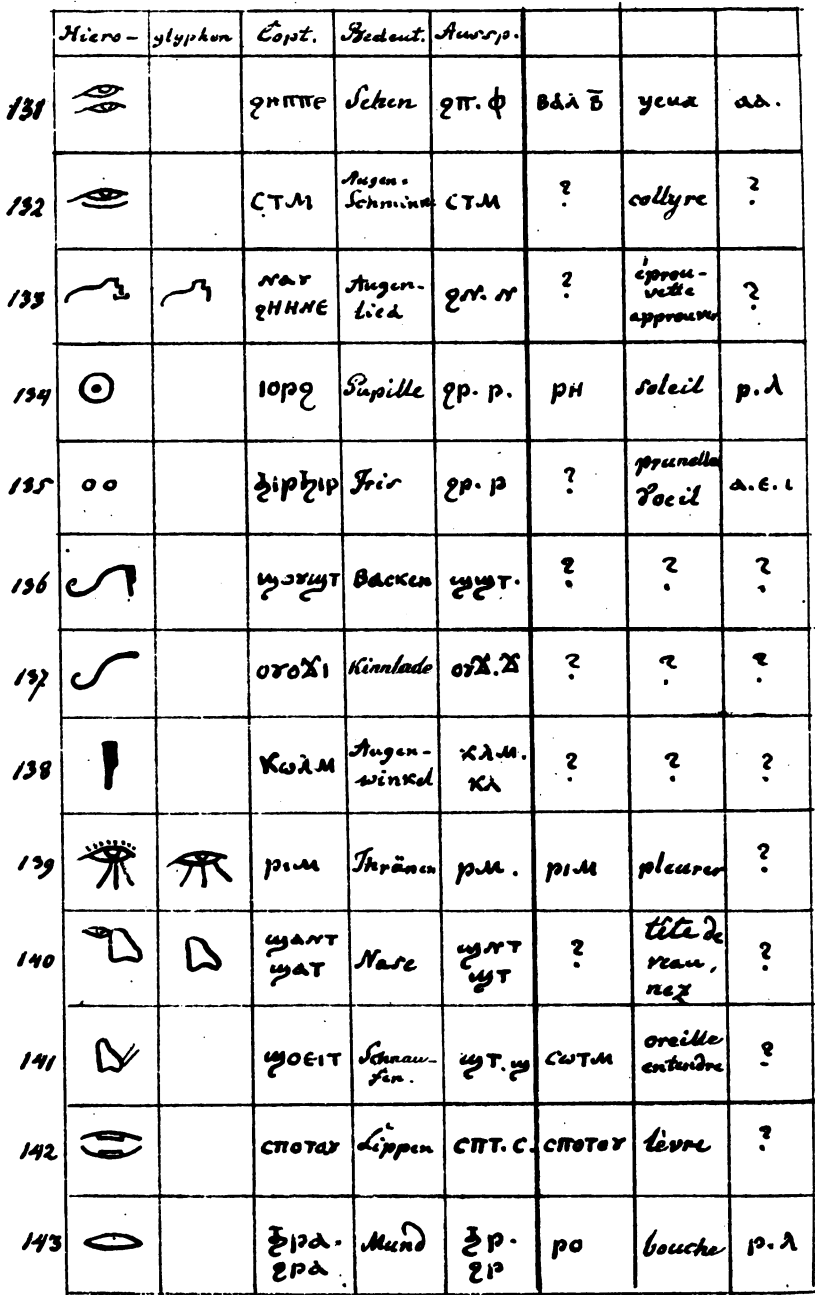 Hiero- glyphen Copt. Bedeut. Aussp.
131 ϩⲏⲡⲡⲉ Sehen ϩⲡ. ⲫ ⲃⲁⲗ ⲃ̅ yeux ⲁⲁ.
132 ⲥⲧⲙ Augen-Schminke ⲥⲧⲙ ? collyre ?
133 ⲛⲁⲩ ϩⲏⲏⲛⲉ Augen-lied ϩⲛ. ⲛ ? éprou-vette approuver ?
134 ⲓⲟⲣϩ Pupille ϩⲣ. ⲣ. ⲣⲏ soleil ⲣ.ⲗ
135 ϧⲓⲣϧⲓⲣ Iris ϩⲣ. ⲣ ? prunelle d'oeil ⲁ.ⲉ.ⲓ
136 ϣⲟⲩϣⲧ Backen ϣϣⲧ. ? ? ?
137 ⲟⲩⲟϫⲓ Kinnlade ⲟⲩϫ.ϫ ? ? ?
138 ⲕⲱⲗⲙ Augen-winkel ⲕⲗⲙ. ⲕⲗ ? ? ?
139 ⲣⲓⲙ Thränen ⲣⲙ. ⲣⲓⲙ pleurer ?
140 ϣⲁⲛⲧ ϣⲁⲧ Nase ϣⲛⲧ ϣⲧ ? tête de veau, nez ?
141 ϣⲟⲉⲓⲧ Schnau-fen. ϣⲧ.ϣ ⲥⲱⲧⲙ oreille entendre ?
142 ⲥⲡⲟⲧⲁⲩ Lippen ⲥⲡⲧ.ⲥ. ⲥⲡⲟⲧⲟⲩ lèvre ?
143 ϧⲣⲁ. ϩⲣⲁ Mund ϧⲣ. ϩⲣ ⲣⲟ bouche ⲣ.ⲗ